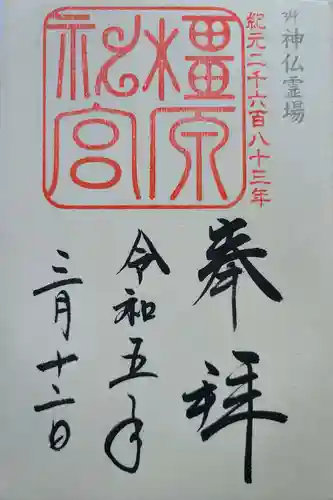 神仏霊場
紀元二千六百八十三年
橿原神宮
奉拝
令和五年
三月十二日